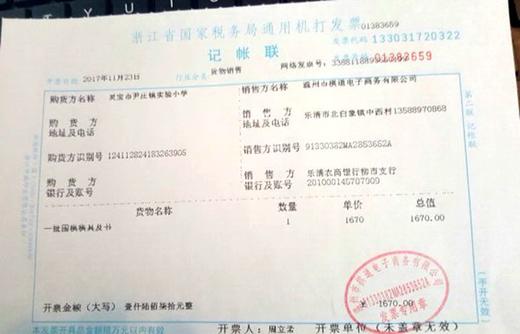 01383659
浙江省国家税务局通用机打发票
发票代码 133031720322
记帐联
发票号码 01383659
开票日期 2017年11月23日 行业分类 货物销售
购货方名称 灵宝市尹庄镇实验小学
销售方名称 温州市棋道电子商务有限公司
购货方
地址及电话
销售方 乐清市北白象镇中西村13588970868
地址及电话
购货方识别号 124112824183263905
销售方识别号 91330382MA2853652A
购货方
银行及账号
销售方 乐清农商银行柳市支行
银行及账号 201000145707909
货物名称 数量 单价 总值
一批围棋棋具及书 1 1670 1670.00
开票金额(大写) 壹仟陆佰柒拾元整 ¥1670.00
开票人: 周立孟 开票单位(未盖章无效)
第二联 记帐联
(手开无效)
温州市棋道电子商务有限公司
91330382MA2853652A
发票专用章